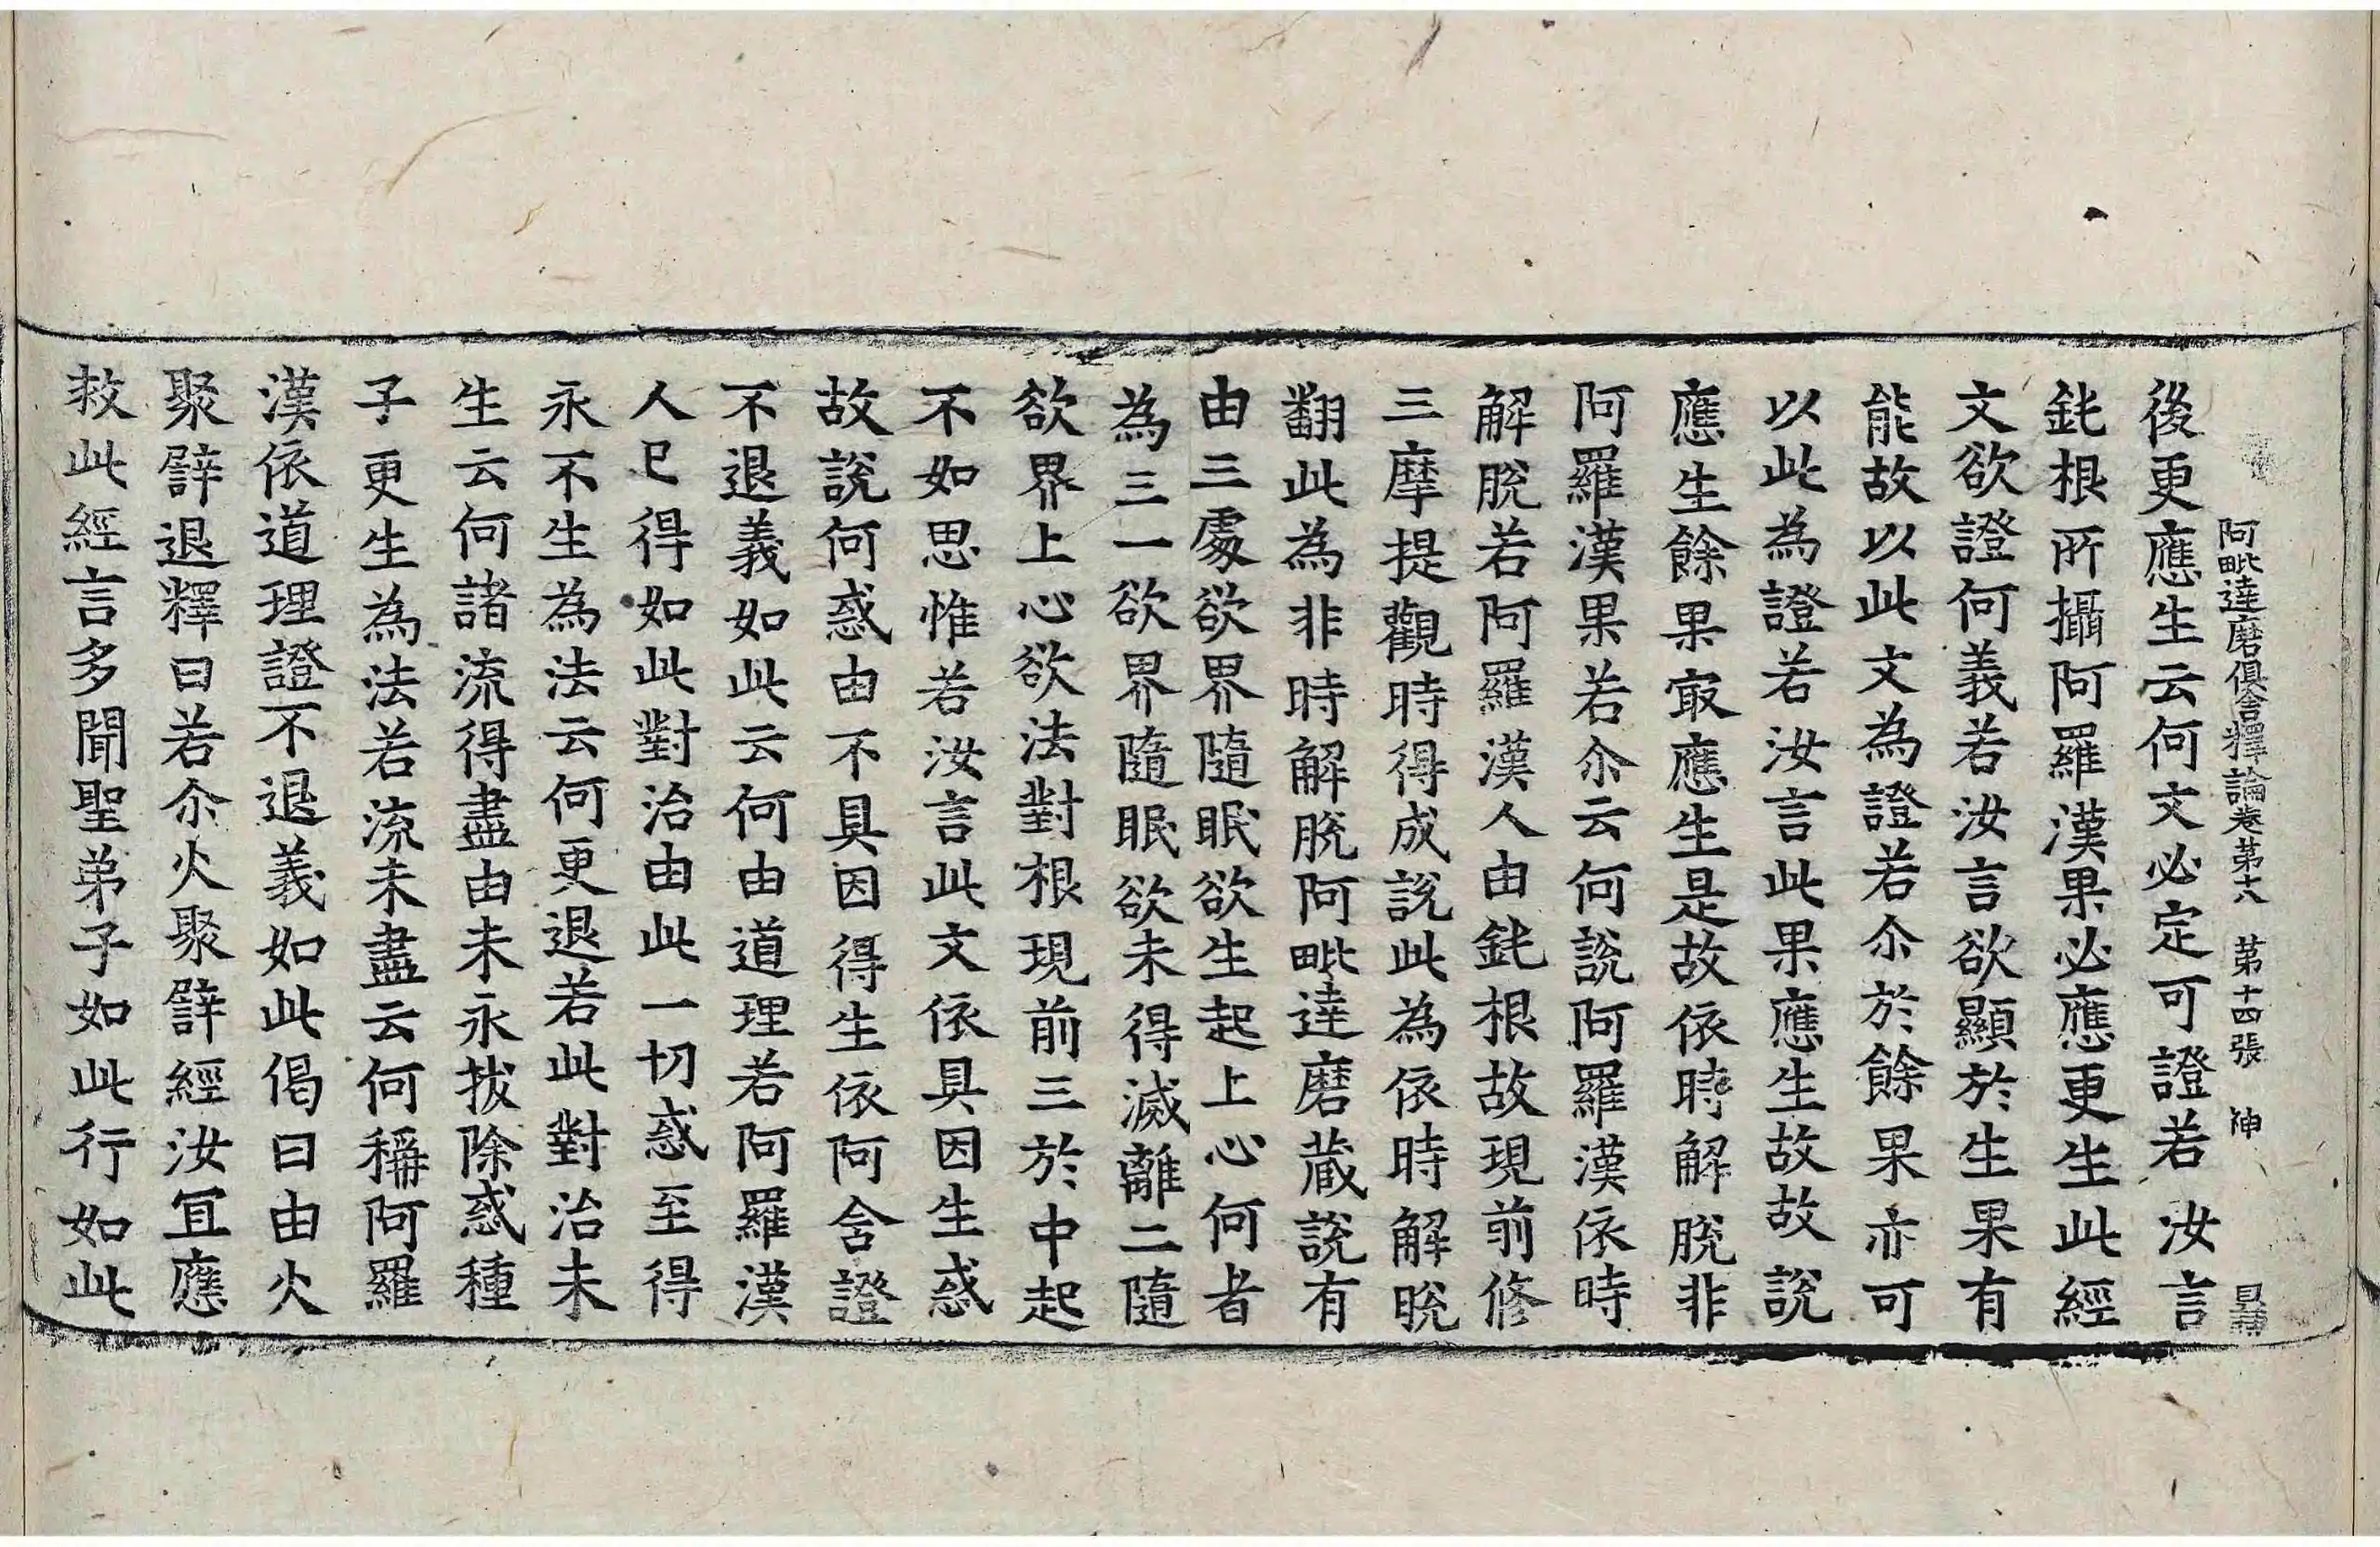 阿毗達磨俱舍釋論卷苐十八 苐十四張 神
後更應生云何文必定可證若汝言
鈍根所攝阿羅漢果必應更生此經
文欲證何義若汝言欲顯於生果有
能故以此文為證若尒於餘果亦可
以此為證若汝言此果應生故故說
應生餘果㝡應生是故依時解脫非
阿羅漢果若尒云何說阿羅漢依時
解脫若阿羅漢人由鈍根故現前修
三摩提觀時得成說此為依時解脫
翻此為非時解脫阿毗達磨蔵說有
由三處欲界隨眠欲生起上心何者
為三一欲界隨眠欲未得滅離二隨
欲界上心欲法對根現前三於中起
不如思惟若汝言此文依具因生惑
故說何惑由不具因得生依阿含證
不退義如此云何由道理若阿羅漢
人已得如此對治由此一切惑至得
永不生為法云何更退若此對治未
生云何諸流得盡由未永拔除惑種
子更生為法若流未盡云何稱阿羅
漢依道理證不退義如此偈曰由火
聚譬退釋曰若尒火聚譬經汝冝應
救此經言多聞聖弟子如此行如此